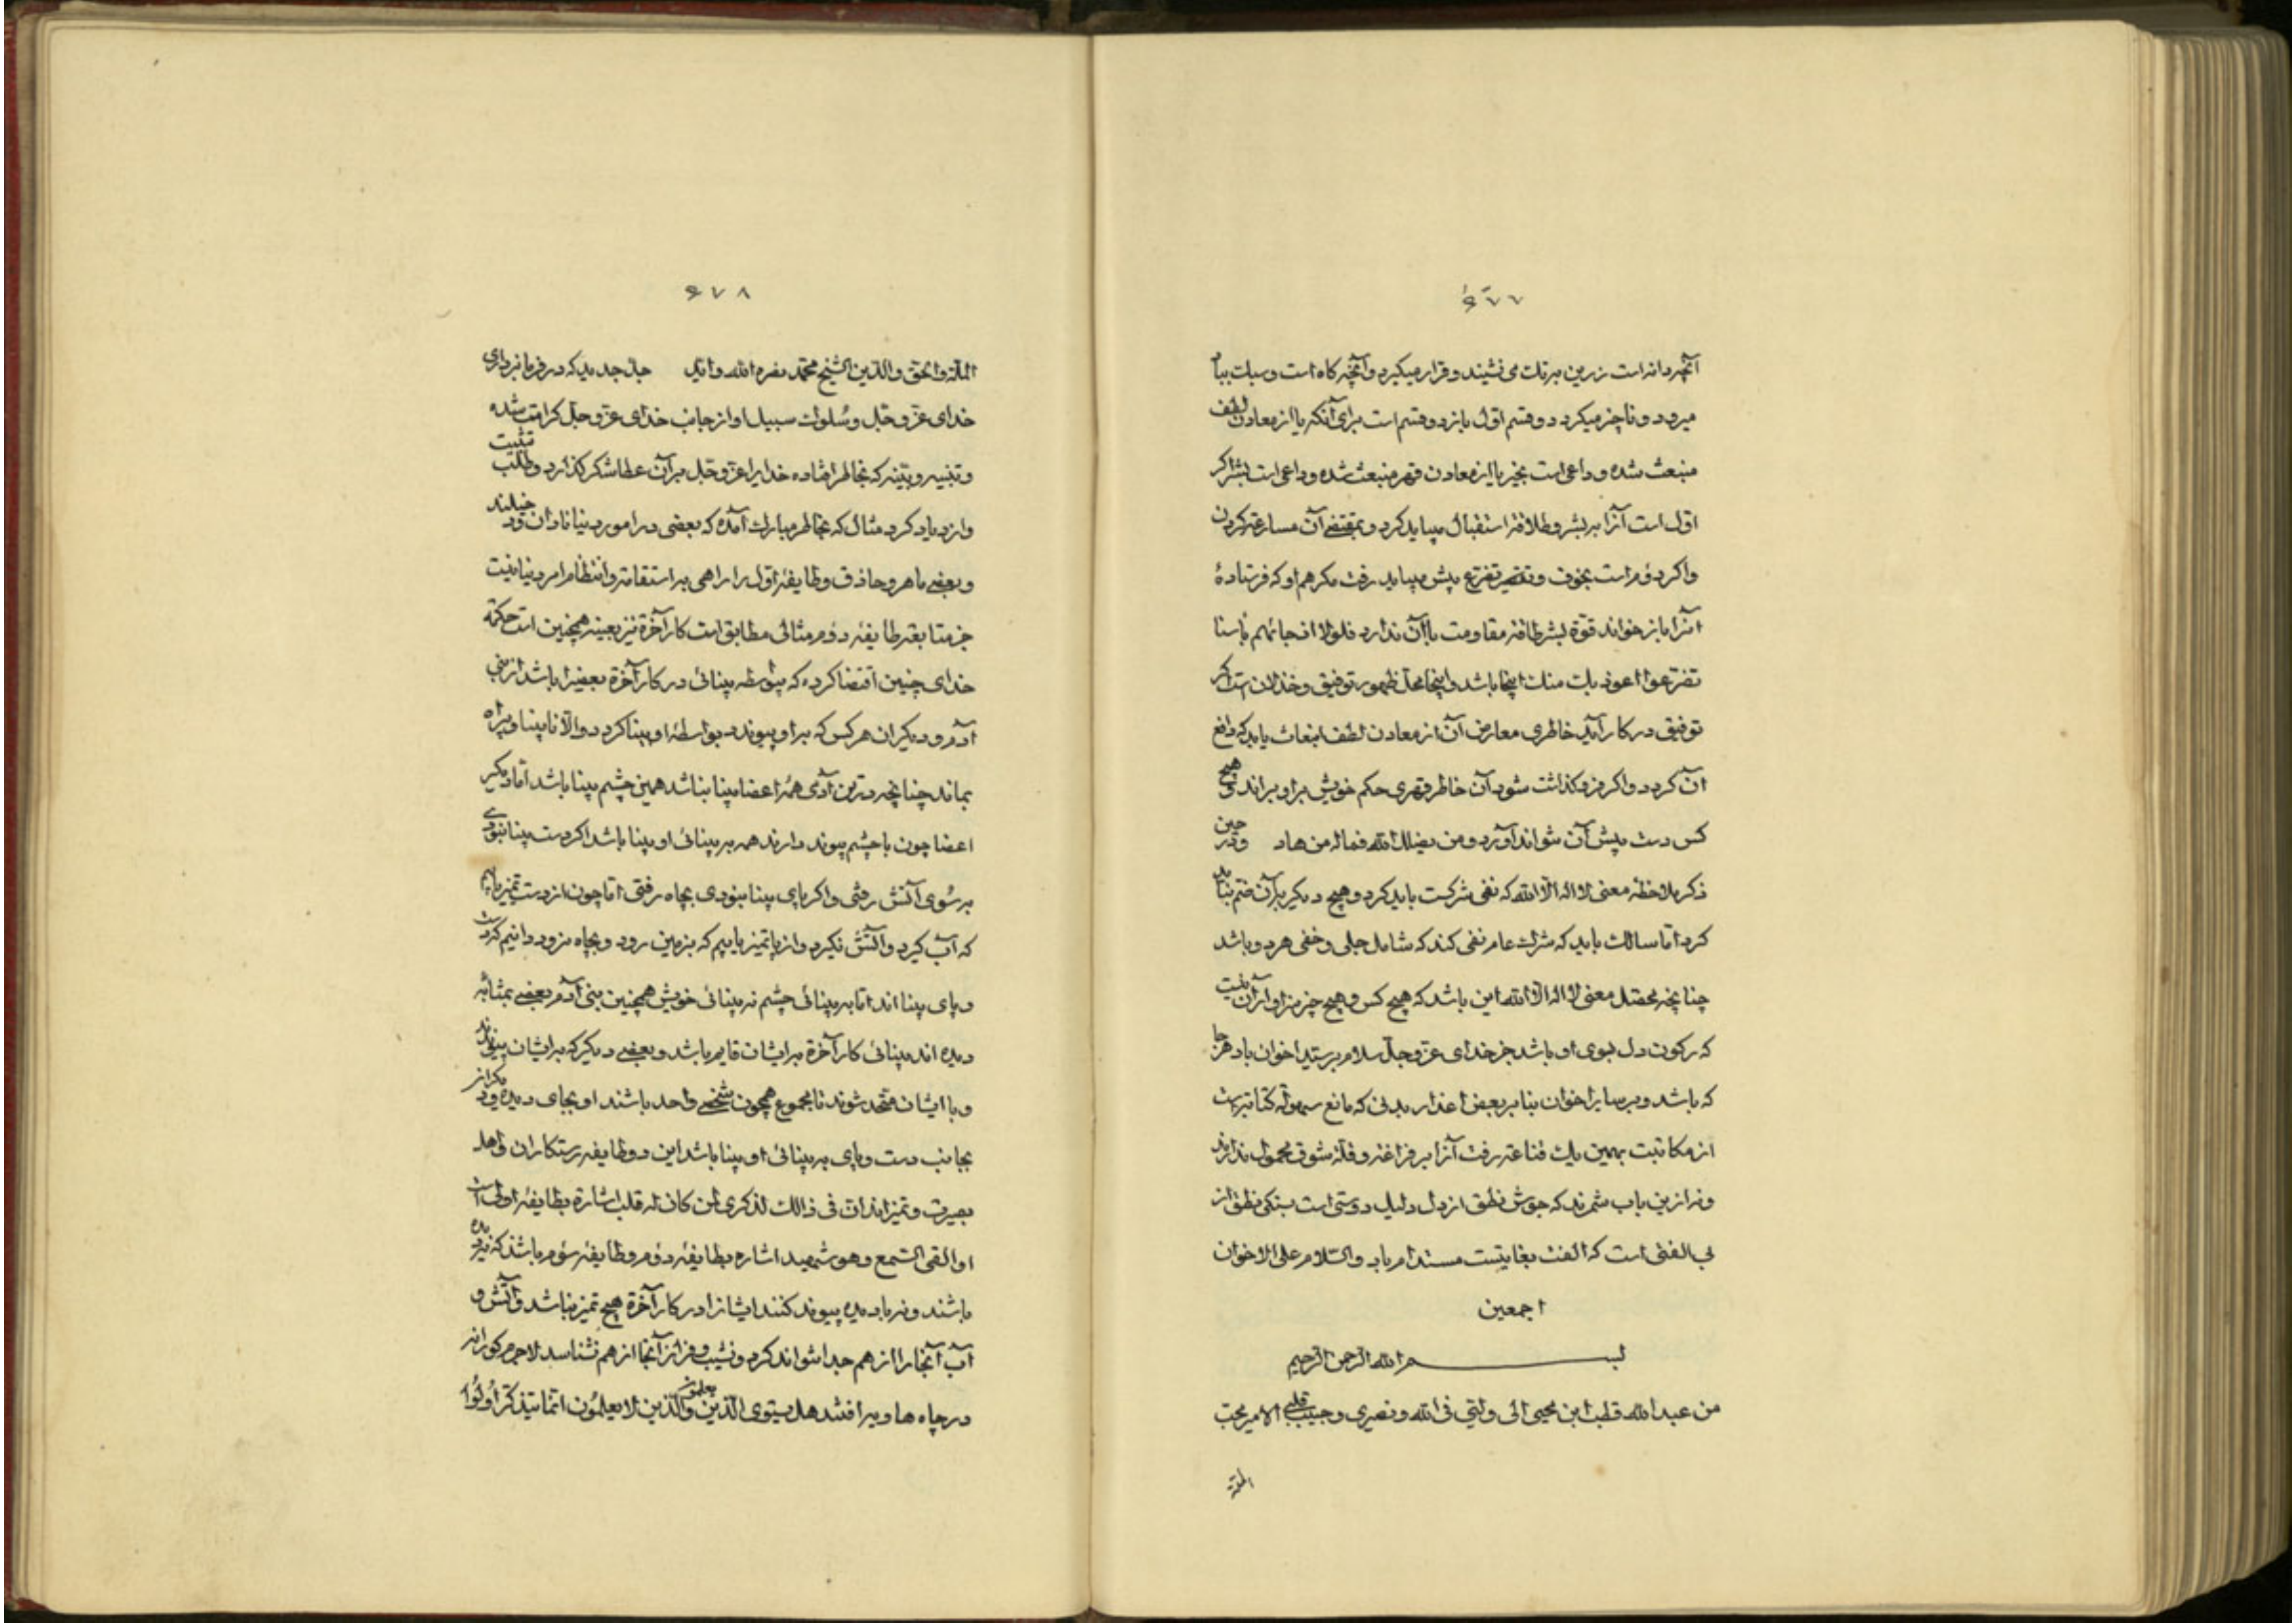 ٦٧٧
آنچه دانه است زرین برتك می نشیند و قرار میکیرد و آنچه کاه است و سبك بباد
میرود و ناچیز میکردد و قسم اوّل باز دو قسم است برای آنکه یا از معادن لطف
منبعث شده و داعی است بخیر یا از معادن قهر منبعث شده و داعی است بشر اکر
اوّل است آنرا ببشر و طلاقة استقبال میباید کرد و بمقتضی آن مسارعة کردن
واکر دوّم است بخوف و تضرّع پیش میباید رفت مکر هم او که فرستادهٔ
آنرا باز خواند قوّة بشر طاقة مقاومت با آن ندارد فلولا اذ جائهم باسنا
تضرّعوا اعوذ بك منك اینجا باشد و اینجا محلّ ظهور توفیق و خذلان است اکر
توفیق در کار آید خاطری معارض آن از معادن لطف انبعاث یابد که دافع
آن کردد واکر فرو کذاشت شود آن خاطر قهری حکم خویش براو براند و هیچ
کس دست پیش آن نتواند آورد و من یضلل الله فماله من هاد ودر حین
ذکر ملاحظهٔ معنی لا اله الّا الله که نفی شرکست باید کرد و هیچ دیکر بر آن ختم نباید
کرد امّا سالك باید که شرك عام نفی کند که شامل جلی و خفی هردو باشد
چنانچه محصّل معنی لا اله الّا الله این باشد که هیچ کس و هیچ چیز سزاوار آن نیست
که رکون دل بسوی او باشد جز خدای عزّ وجلّ سلام برسید اخوان باد هر جا
که باشد و بر سایر اخوان بنابر بعض اعذار بدنی که مانع سهولة کتابتست
از مکاتبت بهمین یك قناعة رفت آنرا بر فراغة و قلّة شوق محمول ندارند
ونه ازین باب شمرند که جوش نطق از دل دلیل دوستی است بستکی نطق از
بی الفتی است که الفت بغایتست مستدام باد والسّلام علی الاخوان
اجمعین
بسم الله الرّحمن الرّحیم
من عبد الله قطب ابن محیی الی ولیّی فی الله و نصیری و حبیب قلبی الامیر محبّ
الملّة
٦٧٨
الملّة والحقّ والدّین الشیخ محمّد نصره الله وایّد جلّ جدید که در فرمانبرداری
خدای عزّ وجلّ وسُلوك سبیل او از جانب خدای عزّ وجلّ کرامت شده
و تنبیه و تثبیت که بخاطر افتاده خدایرا عزّ وجلّ بر آن عطا شکر کذارد و طلب
وازدیاد کرد مثال که بخاطر مبارك آمده که بعضی در امور دنیا نادان
و بعضی ماهر و حاذق و طایفهٔ اوّل را راهی به استقامة و انتظام امر دنیا نیست
جز متابعة طایفهٔ دوّم مثالی مطابق است کار آخرة نیز بعینه همچنین است حکمة
خدای چنین اقتضا کرده که بواسطه بینائی در کار آخرة بعضیرا باشد از بنی
آدم و دیکران هر کس که براو پیوندد بواسطهٔ او بینا کردد والّا نابینا و بیراه
بماند چنانچه درتن آدمی همهٔ اعضا بینا نباشد همین چشم بینا باشد امّا دیکر
اعضا چون با چشم پیوند دارند همه به بینائی او بینا باشد اکر دست بینا نبودی
بر سُوی آتش رفتی واکر پای بینا نبودی بچاه رفتی امّا چون از دست تمیز یابیم
که آب کیرد و آتش نکیرد واز پا تمیز یابیم که بزمین رود و بچاه نرود دانیم که دست
و پای بینا اند امّا به بینائی چشم نه بینائی خویش همچنین بنی آدم بعضی بمثابه
دیده اند بینائی کار آخرة برایشان قایم باشد و بعضی دیکر که برایشان پیوندند
و با ایشان متّحد شوند تا مجموع همچون شخصی واحد باشند او بجای دیده و دیکر از
بجانب دست و پای به بینائی او بینا باشد این دو طایفه رستکاران و اهل
بصیرت و تمیز اند انّ فی ذالك لذکری لمن کان له قلب اشارة بطایفهٔ اولی است
او القی السّمع و هو شهید اشاره بطایفهٔ دوّم و طایفهٔ سوّم باشند که نه دیده
باشند و نه با دیده پیوند کنند ایشانرا در کار آخرة هیچ تمیز نباشد و آتش و
آب آنجا را از هم جدا نتوانند کرد و نشیب و فراز آنجا از هم نشناسد لاجرم کورانه
در چاه ها و بیرا فتند هل یستوی الّذین یعلمون والّذین لا یعلمُون انّما یتذکّر اُولُوا